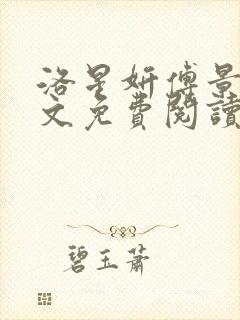 洛星妍傅景
文免費閱讀
碧玉蕭